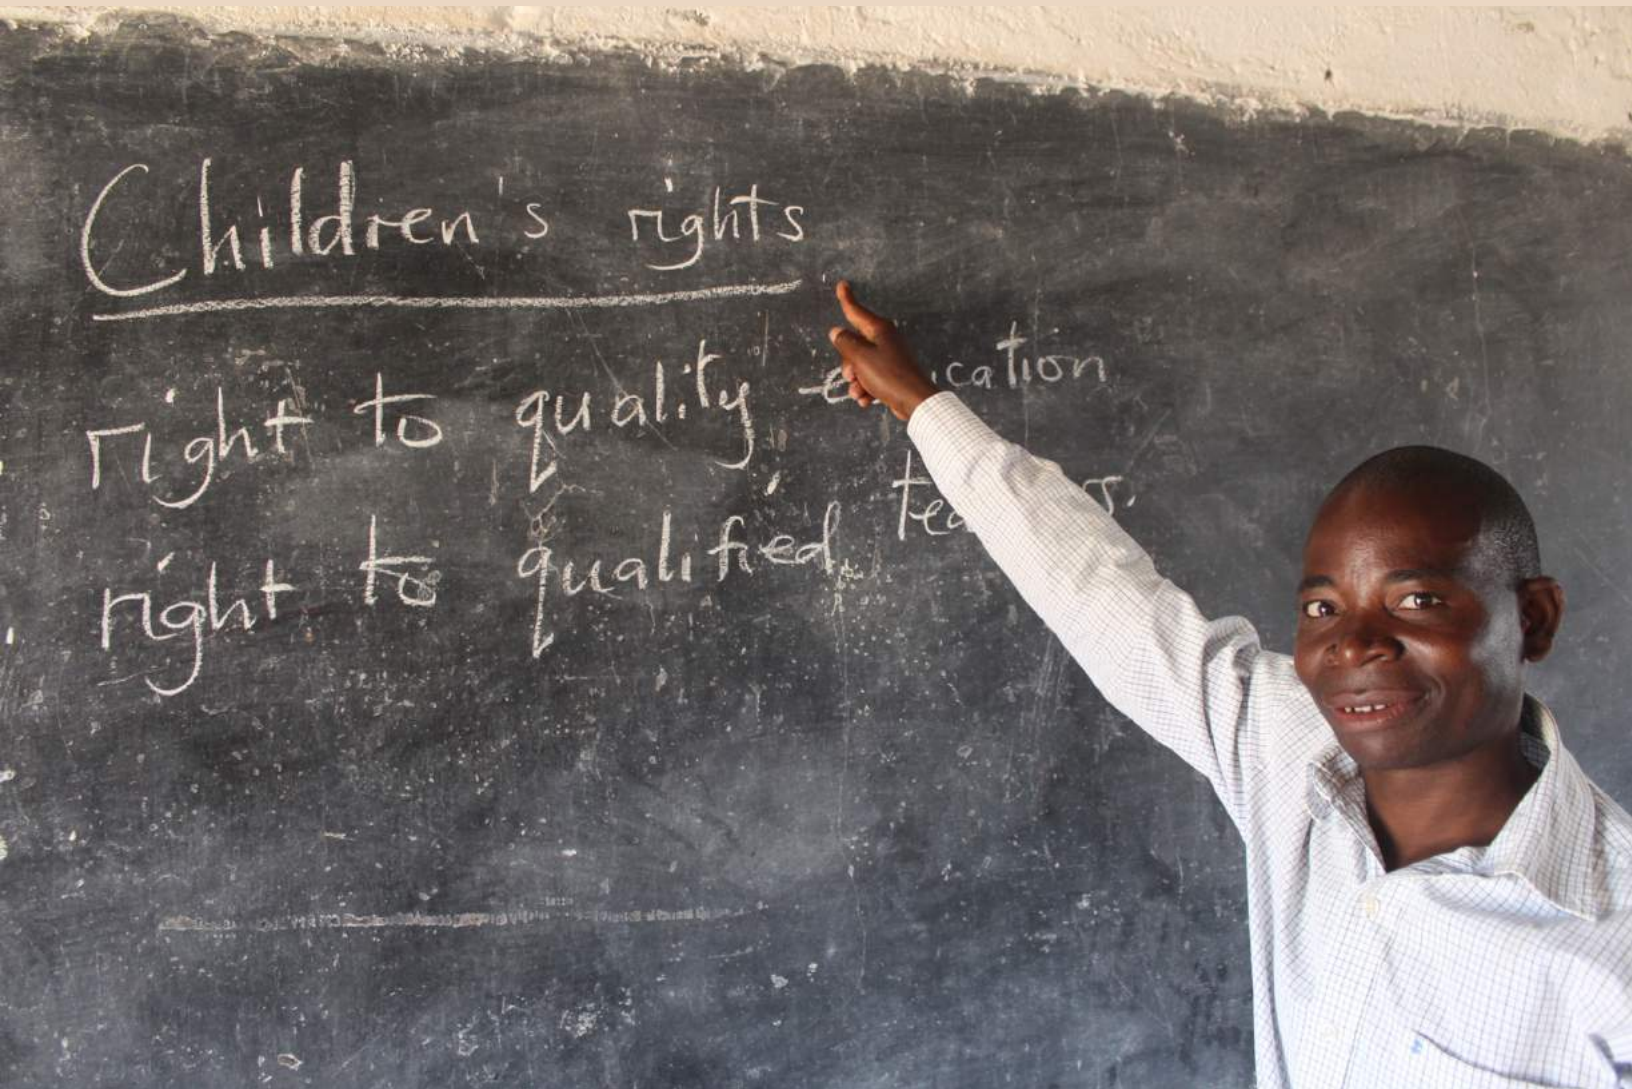 Children's rights
right to quality education
right to qualified teachers.